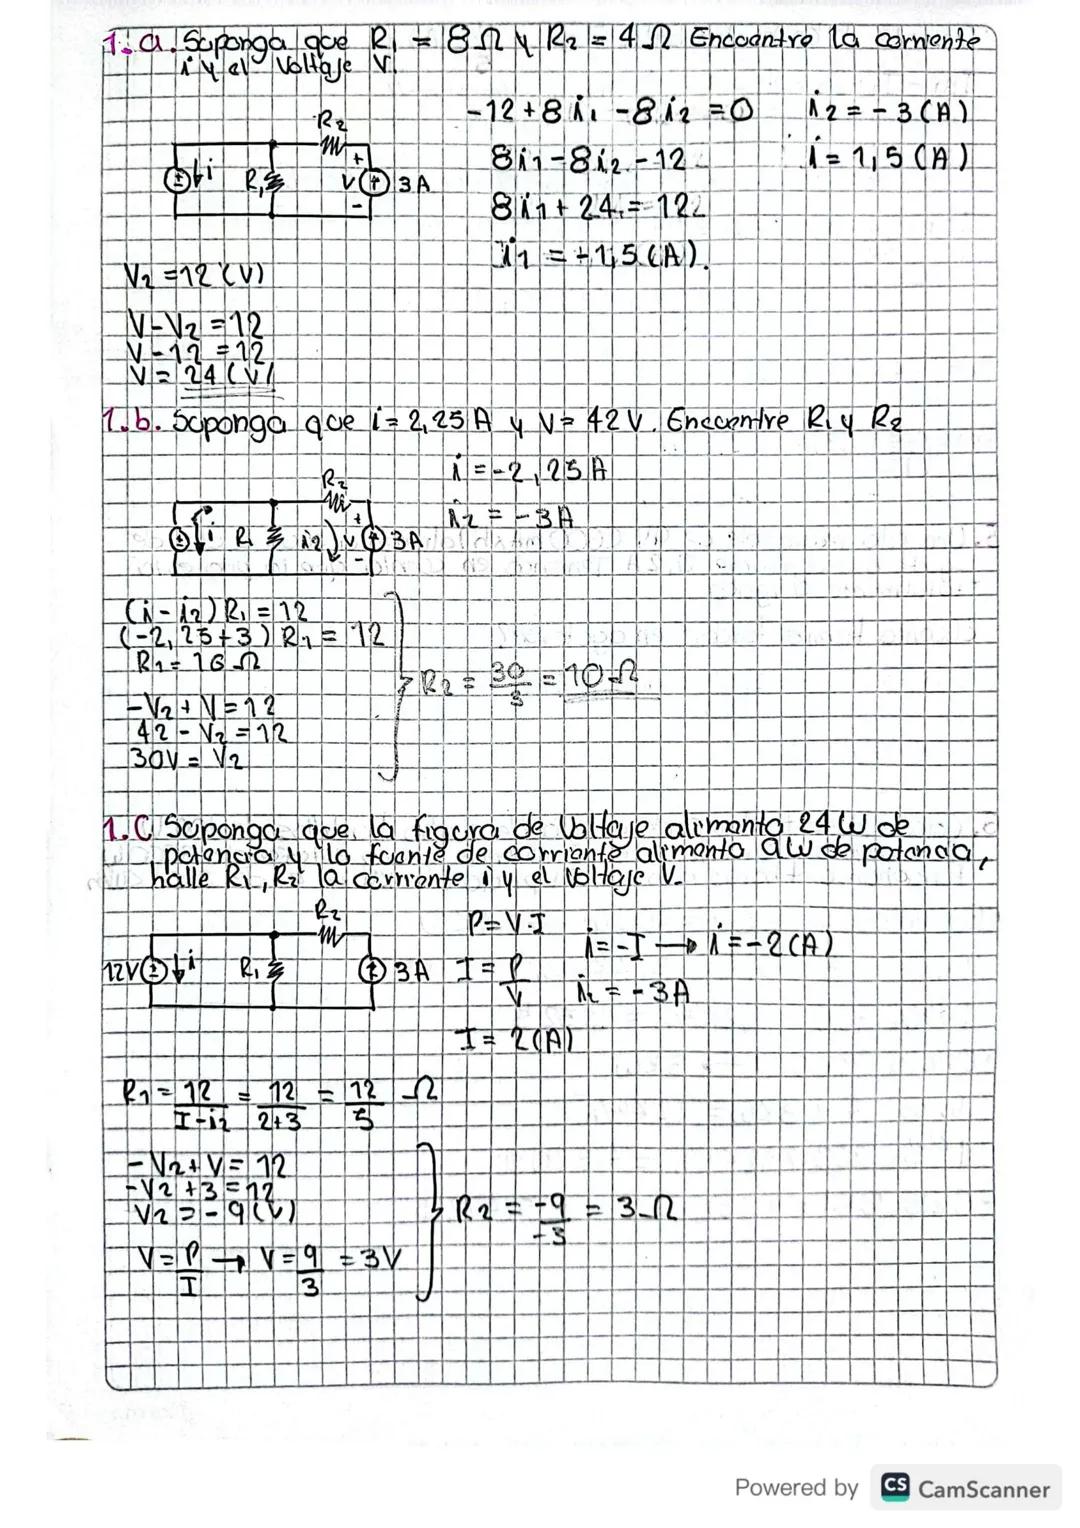 1. a. Suponga que R1 = 8Ω y R2 = 4Ω Encuentre la corriente
i y el Voltaje V.
-12+8i1-8i2=0
i2=-3(A)
R2
8i1-8i2-12
i=1,5(A)
i
R1
+
V
-
3A
8i1+24=12
i1=+1,5(A).
V2=12(V)
V-V2=12
V-12=12
V=24(V)
1.b. Suponga que i=2,25A y V=42V. Encuentre R1 y R2
i=-2,25A
R2
i2=-3A
i
R1
i2
+
V
-
3A
(i-i2)R1=12
(-2,25+3)R1=12
R1=16Ω
R2=30/3=10Ω
-V2+V=12
42-V2=12
30V=V2
1.C Suponga que la figura de Voltaje alimenta 24W de
potencia y la fuente de corriente alimenta 9W de potencia,
halle R1, R2 la corriente i y el voltaje V.
R2
P=V.I
i=-I → i=-2(A)
12V
i
R1
3A
I=P/V
i2=-3A
I=2(A)
R1=12/I-i2=12/2+3=12/5Ω
-V2+V=12
-V2+3=12
V2=-9(V)
R2=-9/-3=3Ω
V=P/I → V=9/3=3V
Powered by CS CamScanner